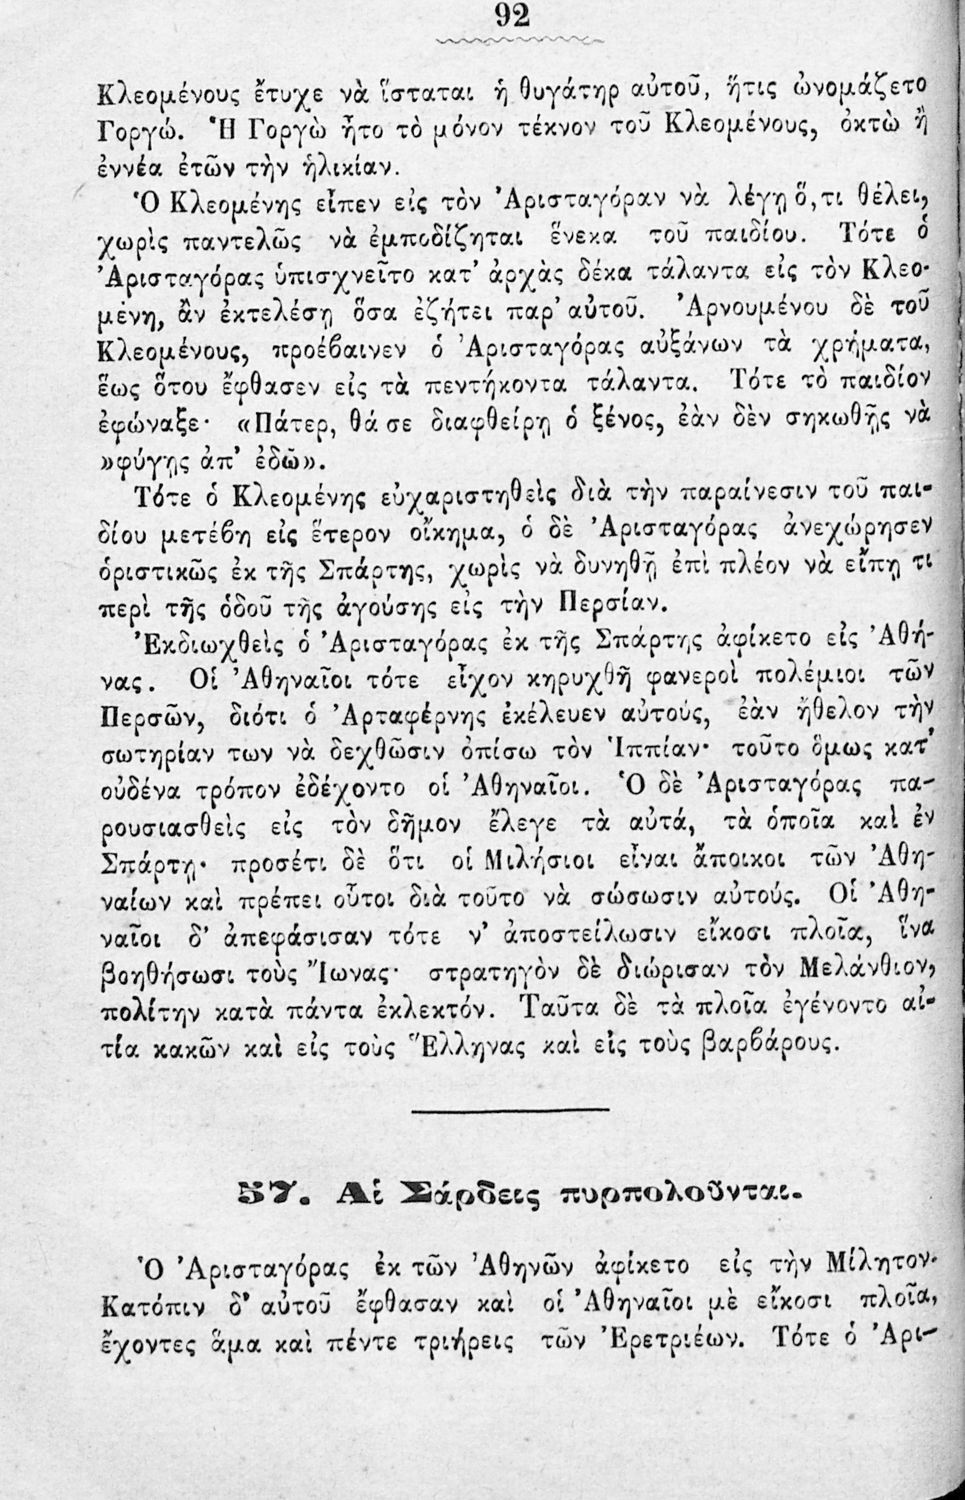 92
Κλεομένους ἔτυχε νὰ ἵσταται ἡ θυγάτηρ αὐτοῦ, ἥτις ὠνομάζετο
Γοργώ. Ἡ Γοργὼ ἦτο τὸ μόνον τέκνον τοῦ Κλεομένους, ὀκτὼ ἢ
ἐννέα ἐτῶν τὴν ἡλικίαν.
Ὁ Κλεομένης εἶπεν εἰς τὸν Ἀρισταγόραν νὰ λέγῃ ὅ,τι θέλει,
χωρὶς παντελῶς νὰ ἐμποδίζηται ἕνεκα τοῦ παιδίου. Τότε ὁ
Ἀρισταγόρας ὑπισχνεῖτο κατ' ἀρχὰς δέκα τάλαντα εἰς τὸν Κλεο-
μένη, ἂν ἐκτελέσῃ ὅσα ἐζήτει παρ' αὐτοῦ. Ἀρνουμένου δὲ τοῦ
Κλεομένους, προέβαινεν ὁ Ἀρισταγόρας αὐξάνων τὰ χρήματα,
ἕως ὅτου ἔφθασεν εἰς τὰ πεντήκοντα τάλαντα. Τότε τὸ παιδίον
ἐφώναξε· «Πάτερ, θά σε διαφθείρῃ ὁ ξένος, ἐὰν δὲν σηκωθῇς νὰ
»φύγῃς ἀπ' ἐδῶ».
Τότε ὁ Κλεομένης εὐχαριστηθεὶς διὰ τὴν παραίνεσιν τοῦ παι-
δίου μετέβη εἰς ἕτερον οἴκημα, ὁ δὲ Ἀρισταγόρας ἀνεχώρησεν
ὁριστικῶς ἐκ τῆς Σπάρτης, χωρὶς νὰ δυνηθῇ ἐπὶ πλέον νὰ εἴπῃ τι
περὶ τῆς ὁδοῦ τῆς ἀγούσης εἰς τὴν Περσίαν.
Ἐκδιωχθεὶς ὁ Ἀρισταγόρας ἐκ τῆς Σπάρτης ἀφίκετο εἰς Ἀθή-
νας. Οἱ Ἀθηναῖοι τότε εἶχον κηρυχθῆ φανεροὶ πολέμιοι τῶν
Περσῶν, διότι ὁ Ἀρταφέρνης ἐκέλευεν αὐτούς, ἐὰν ἤθελον τὴν
σωτηρίαν των νὰ δεχθῶσιν ὀπίσω τὸν Ἱππίαν· τοῦτο ὅμως κατ'
οὐδένα τρόπον ἐδέχοντο οἱ Ἀθηναῖοι. Ὁ δὲ Ἀρισταγόρας πα-
ρουσιασθεὶς εἰς τὸν δῆμον ἔλεγε τὰ αὐτά, τὰ ὁποῖα καὶ ἐν
Σπάρτῃ· προσέτι δὲ ὅτι οἱ Μιλήσιοι εἶναι ἄποικοι τῶν Ἀθη-
ναίων καὶ πρέπει οὗτοι διὰ τοῦτο νὰ σώσωσιν αὐτούς. Οἱ Ἀθη-
ναῖοι δ' ἀπεφάσισαν τότε ν' ἀποστείλωσιν εἴκοσι πλοῖα, ἵνα
βοηθήσωσι τοὺς Ἴωνας· στρατηγὸν δὲ διώρισαν τὸν Μελάνθιον,
πολίτην κατὰ πάντα ἐκλεκτόν. Ταῦτα δὲ τὰ πλοῖα ἐγένοντο αἰ-
τία κακῶν καὶ εἰς τοὺς Ἕλληνας καὶ εἰς τοὺς βαρβάρους.
57. Αἱ Σάρδεις πυρπολοῦνται.
Ὁ Ἀρισταγόρας ἐκ τῶν Ἀθηνῶν ἀφίκετο εἰς τὴν Μίλητον.
Κατόπιν δ' αὐτοῦ ἔφθασαν καὶ οἱ Ἀθηναῖοι μὲ εἴκοσι πλοῖα,
ἔχοντες ἅμα καὶ πέντε τριήρεις τῶν Ἐρετριέων. Τότε ὁ Ἀρι-